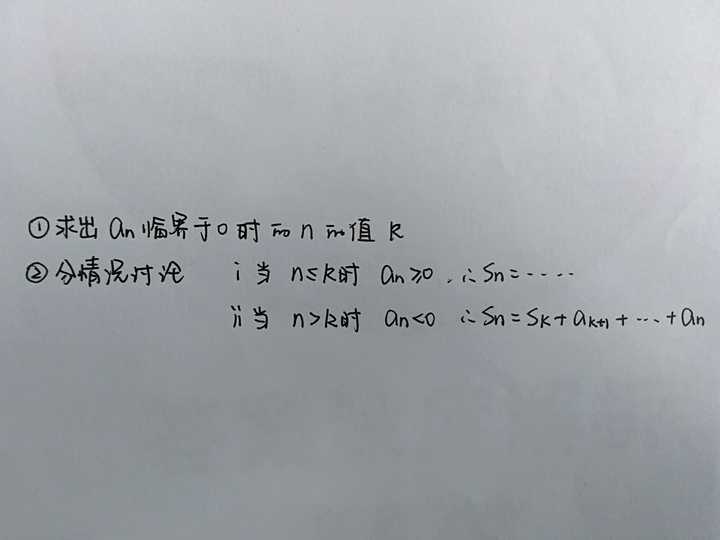 ①求出 an 临界于0时的 n 的值 k
②分情况讨论 i 当 n≤k时 an≥0 ∴Sn=……
ii 当 n>k时 an<0 ∴Sn=Sk+ak+1+…+an